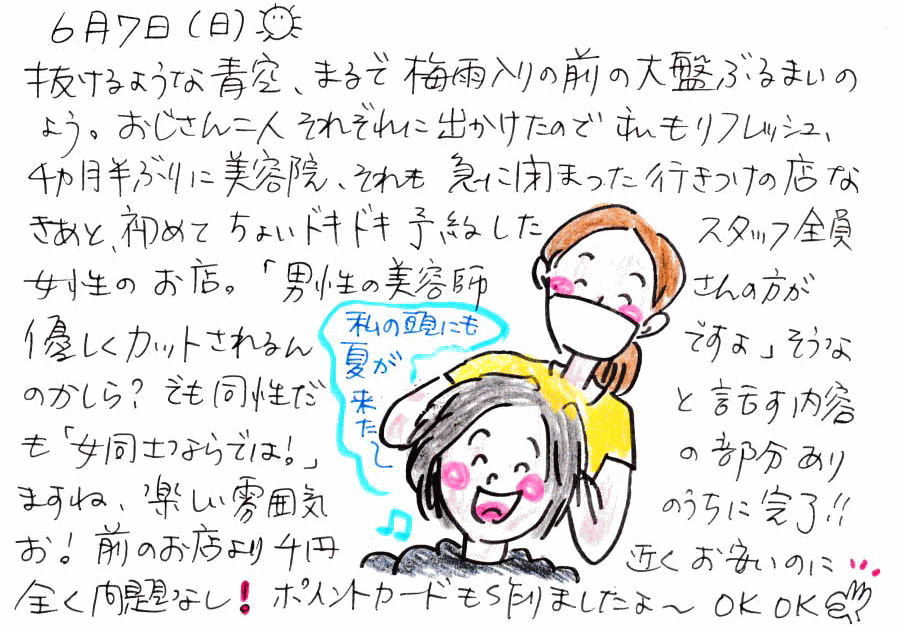 6月7日(日)
抜けるような青空、まるで梅雨入りの前の大盤ぶるまいの
よう。おじさん二人それぞれに出かけたので私もリフレッシュ、
4カ月半ぶりに美容院、それも急に閉まった行きつけの店な
きあと、初めてちょいドキドキ予約したスタッフ全員
女性のお店。「男性の美容師さんの方が
優しくカットされるんですよ」そうな
のかしら?でも同性だと話す内容
も「女同士ならでは!」の部分あり
ますね、楽しい雰囲気のうちに完了!!
お!前のお店より千円近くお安いのに
全く問題なし!ポイントカードも作りましたよ〜OKOK
私の頭にも
夏が
来た〜